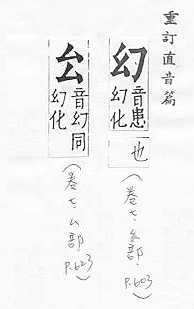 重訂直音篇
幻
音患
幻化
也
(卷七·幺部·P.603)
音幻同
幻化
(卷七·厶部·P.623)